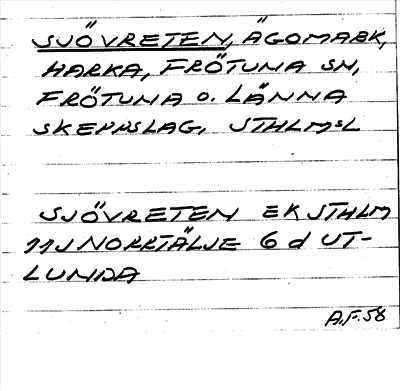 SJÖVRETEN, ÄGOMARK,
HARKA, FRÖTUNA SN,
FRÖTUNA o. LÄNNA
SKEPPSLAG, STHLMSL
SJÖVRETEN EK STHLM
11J NORRTÄLJE 6 d UT-
LUNDA
A.F. 58